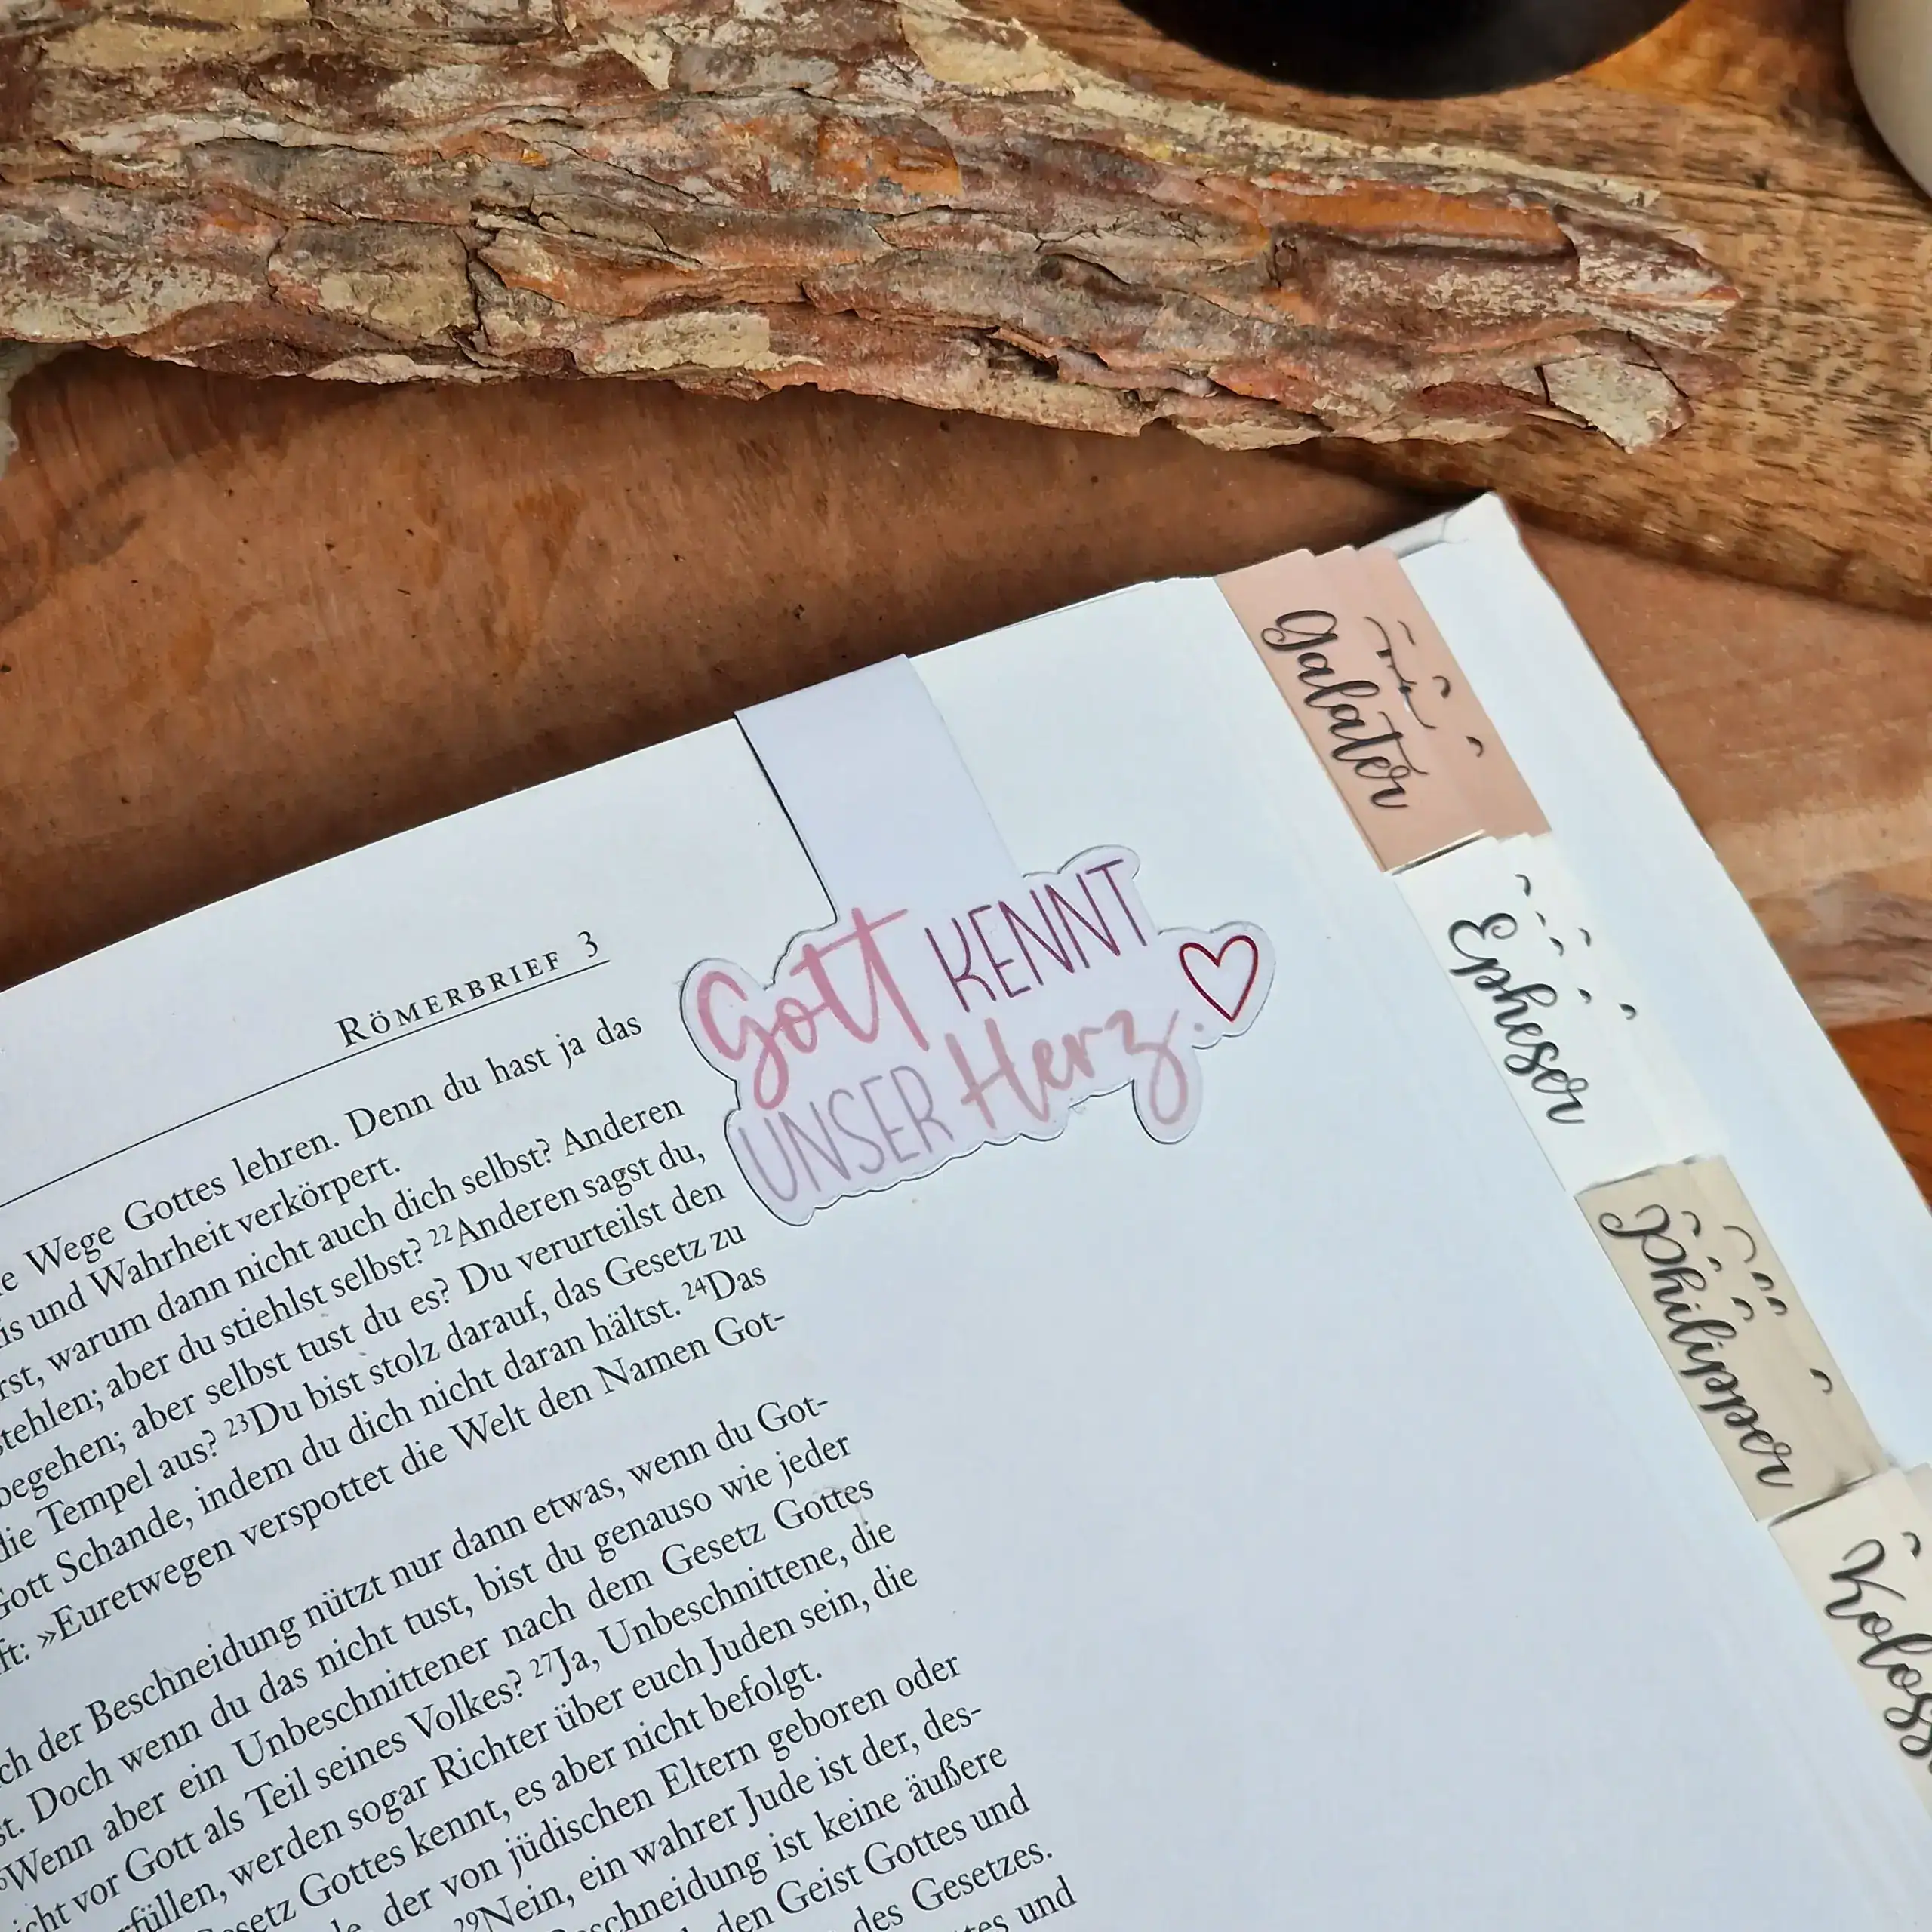 RÖMERBRIEF 3
Wege Gottes lehren. Denn du hast ja das
und Wahrheit verkörpert.
warum dann nicht auch dich selbst? Anderen
aber du stiehlst selbst? 22Anderen sagst du,
begehen; aber selbst tust du es? Du verurteilst den
die Tempel aus? 23Du bist stolz darauf, das Gesetz zu
Gott Schande, indem du dich nicht daran hältst. 24Das
»Euretwegen verspottet die Welt den Namen Got-
der Beschneidung nützt nur dann etwas, wenn du Got-
Doch wenn du das nicht tust, bist du genauso wie jeder
Wenn aber ein Unbeschnittener nach dem Gesetz Gottes
vor Gott als Teil seines Volkes? 27Ja, Unbeschnittene, die
werden sogar Richter über euch Juden sein, die
Gottes kennt, es aber nicht befolgt.
der von jüdischen Eltern geboren oder
29Nein, ein wahrer Jude ist der, des-
ist keine äußere
den Geist Gottes und
des Gesetzes.
und
Gott KENNT
UNSER Herz.
Galater
Epheser
Philipper
Koloss